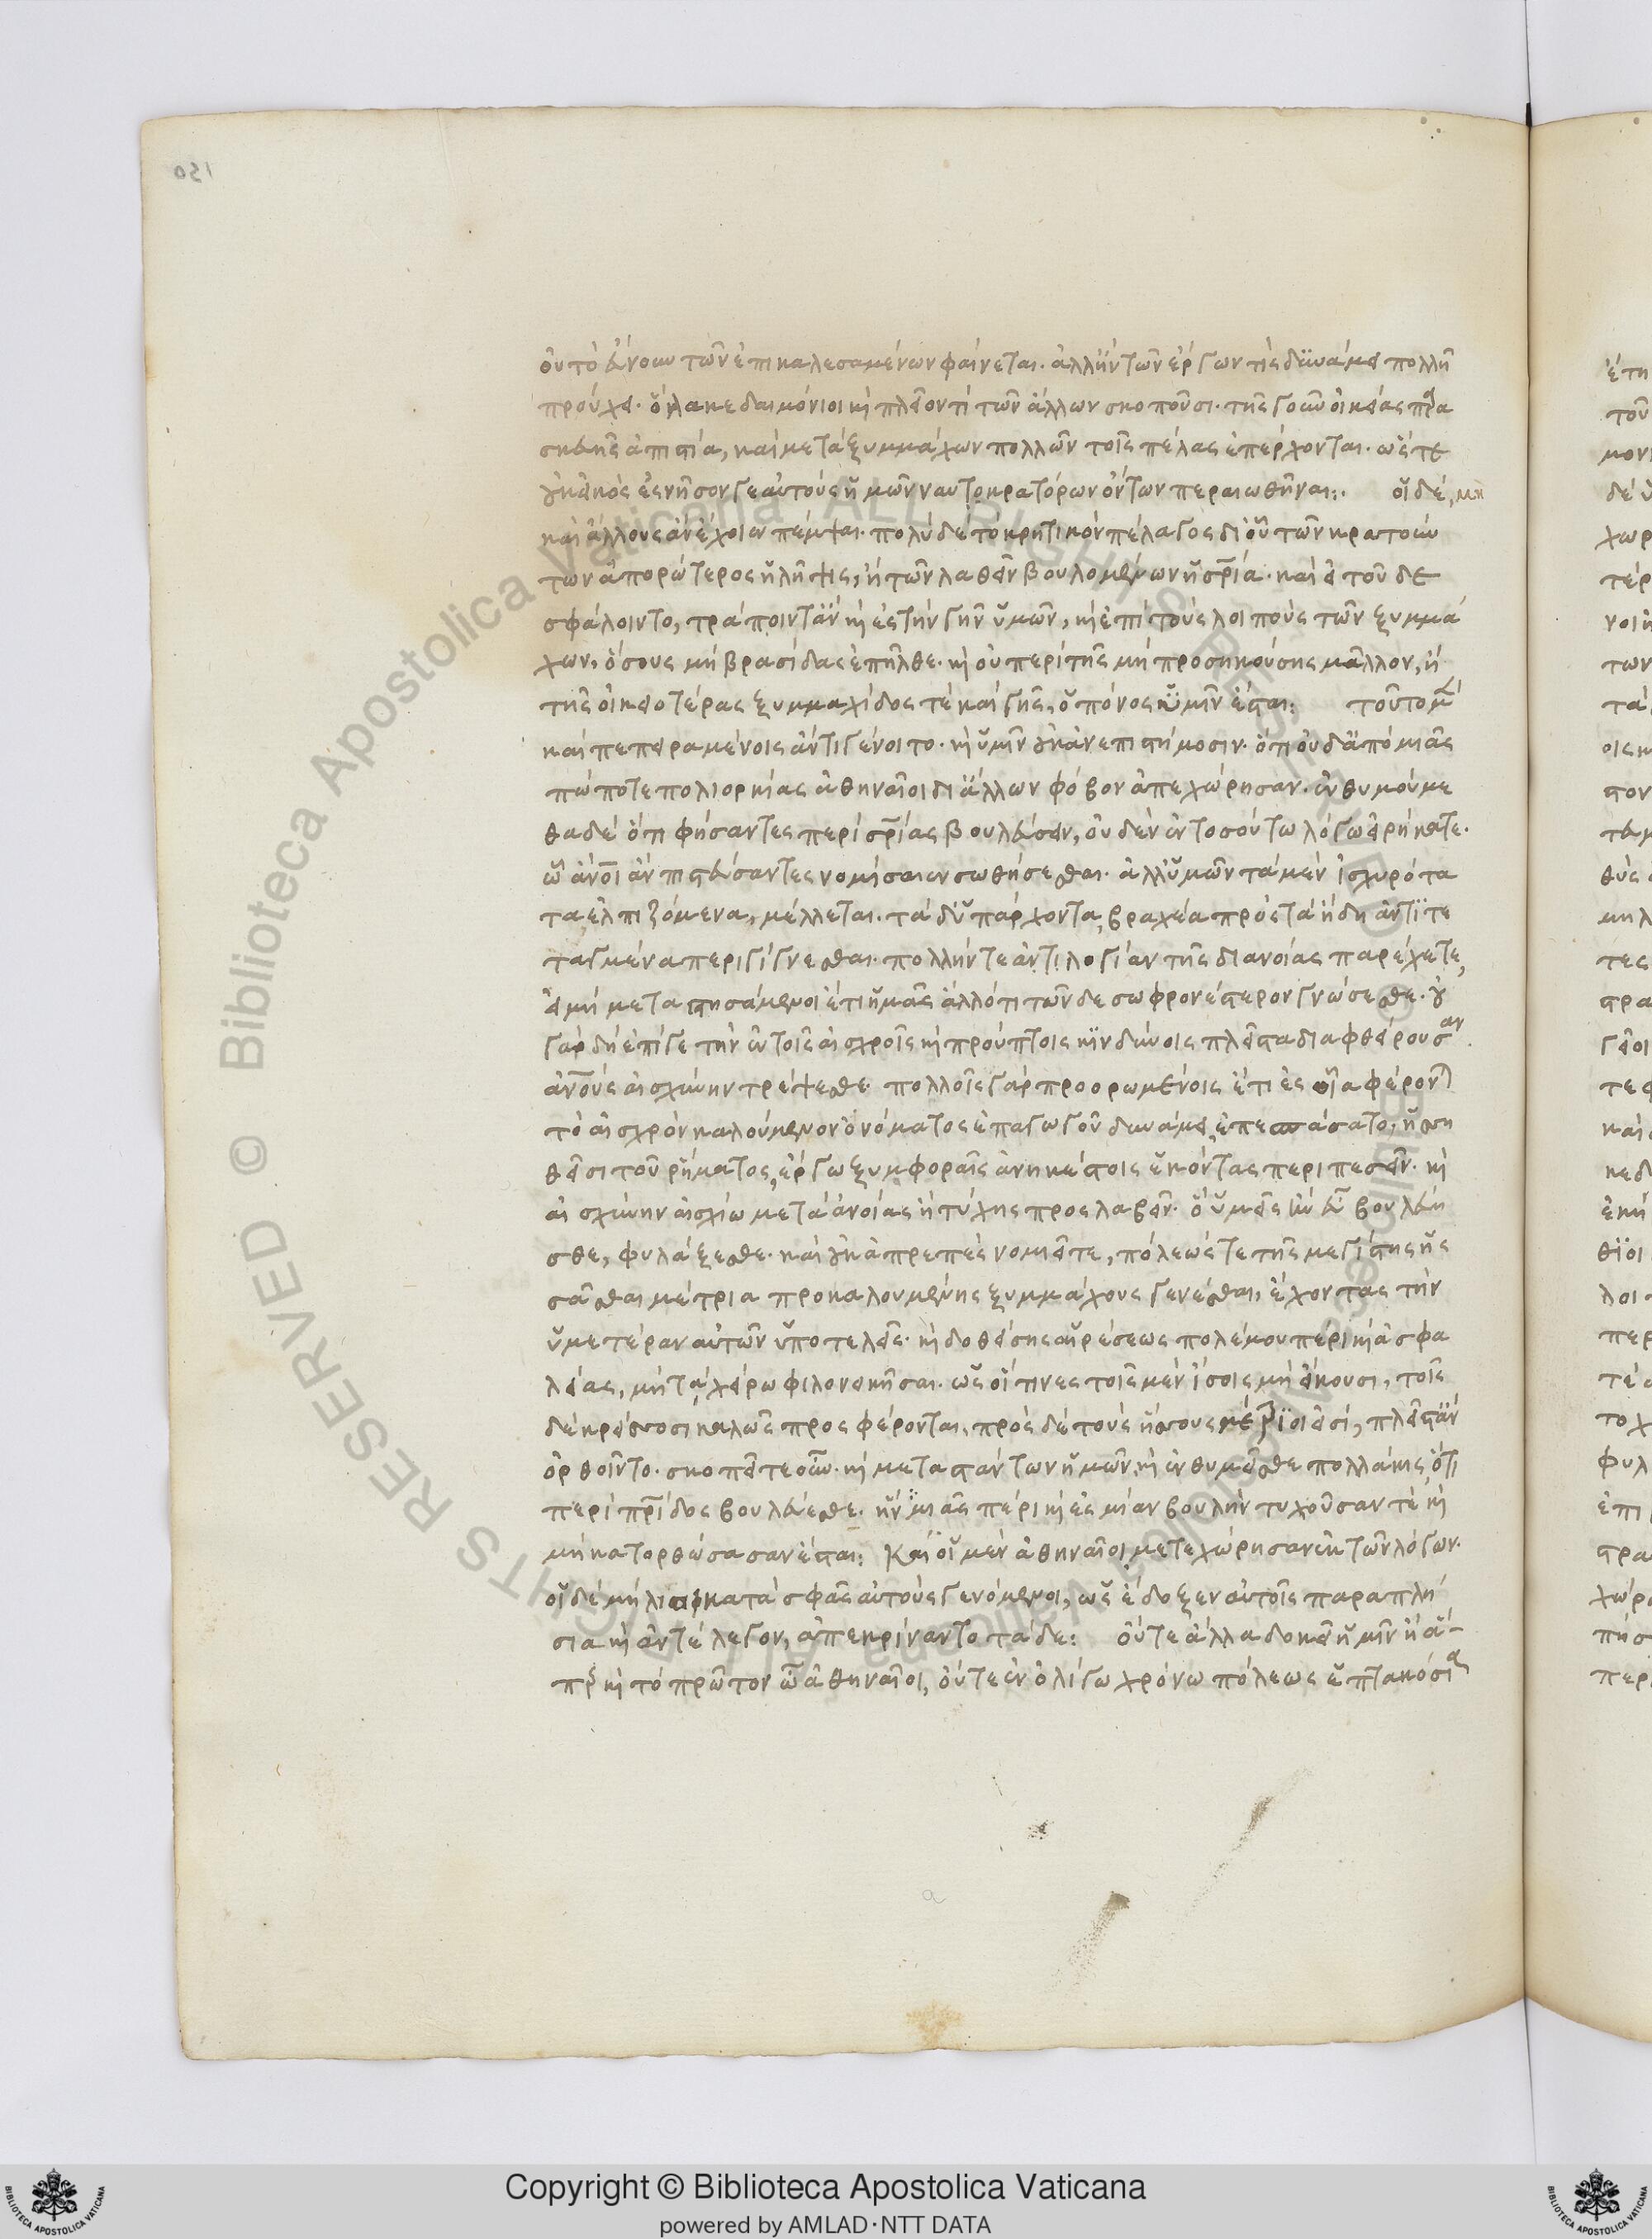 οὐ τὸ εὔνουν τῶν ἐπικαλεσαμένων φαίνεται. ἀλλ' ἢν τῶν ἔργων τὶς δυνάμει πολλῆ
προύχει. ὃ καὶ λακεδαιμόνιοι καὶ πλεῖόν τι τῶν ἄλλων σκοποῦσι. τῆς γοῦν οἰκείας παρα
σκευῆς ἀπιστία, καὶ μετὰ ξυμμάχων πολλῶν τοῖς πέλας ἐπέρχονται. ὥστε
οὐκ εἰκὸς ἐς νῆσόν γε αὐτοὺς ἡμῶν ναυτοκρατόρων ὄντων περαιωθῆναι:. οἱ δέ, μηλ
καὶ ἄλλους ἂν ἔχοιεν πέμψαι. πολὺ δὲ τὸ κρητικὸν πέλαγος δι' οὗ τῶν κρατούν
των ἀπορώτερος ἡ λῆψις, ἢ τῶν λαθεῖν βουλομένων ἡ σωτηρία. καὶ εἰ τοῦ δε
σφάλοιντο, τράποιντ' ἂν καὶ ἐς τὴν γῆν ὑμῶν, καὶ ἐπὶ τοὺς λοιποὺς τῶν ξυμμά
χων, ὅσους μὴ βρασίδας ἐπῆλθε. καὶ οὐ περὶ τῆς μὴ προσηκούσης μᾶλλον, ἢ
τῆς οἰκειοτέρας ξυμμαχίδος τὲ καὶ γῆς, ὁ πόνος ὑμῖν ἔσται: τοῦτο μὲν
καὶ πεπειραμένοις ἄν τι γένοιτο. καὶ ὑμῖν οὐκ ἀνεπιστήμοσιν. ὅτι οὐδ' ἀπὸ μιᾶς
πώποτε πολιορκίας ἀθηναῖοι δι' ἄλλων φόβον ἀπεχώρησαν. ἐνθυμούμε
θα δὲ ὅτι φήσαντες περὶ σωτηρίας βουλεύσειν, οὐδὲν ἐν τοσούτω λόγω εἰρήκατε.
ὧ ἄνθρωποι ἂν πιστεύσαντες νομίσαιεν σωθήσεσθαι. ἀλλ' ὑμῶν τὰ μὲν ἰσχυρότα
τα ἐλπιζόμενα, μέλλεται. τὰ δ' ὑπάρχοντα, βραχέα πρὸς τὰ ἤδη ἀντιτε
ταγμένα περιγίγνεσθαι. πολλήν τε ἀντιλογίαν τῆς διανοίας παρέχετε,
εἰ μὴ μεταστησάμενοι ἔτι ἡμᾶς ἄλλό τι τῶν δε σωφρονέστερον γνώσεσθε. οὐ
γὰρ δὴ ἐπί γε τὴν ἐν τοῖς αἰσχροῖς καὶ προύπτοις κινδύνοις πλεῖστα διαφθείρουσαν
ἀνθρώπους αἰσχύνην τρέψεσθε. πολλοῖς γὰρ προορωμένοις ἔτι ἐς οἷα φέρονται
τὸ αἰσχρὸν καλούμενον ὀνόματος ἐπαγωγοῦ δυνάμει, ἐπεσπάσατο, ἡσση
θεῖσι τοῦ ῥήματος, ἔργω ξυμφοραῖς ἀνηκέστοις ἑκόντας περιπεσεῖν. καὶ
αἰσχύνην αἰσχίω μετὰ ἀνοίας ἢ τύχης προσλαβεῖν. ὃ ὑμεῖς ἢν εὖ βουλεύη
σθε, φυλάξεσθε. καὶ οὐκ ἀπρεπὲς νομιεῖτε, πόλεώς τε τῆς μεγίστης ἡσ
σᾶσθαι μέτρια προκαλουμένης ξυμμάχους γενέσθαι, ἔχοντας τὴν
ὑμετέραν αὐτῶν ὑποτελεῖς. καὶ δοθείσης αἱρέσεως πολέμου πέρι καὶ ἀσφα
λείας, μὴ τὰ χείρω φιλονεικῆσαι. ὡς οἵ τινες τοῖς μὲν ἴσοις μὴ εἴκουσι, τοῖς
δὲ κρείσσοσι καλῶς προσφέρονται, πρὸς δὲ τοὺς ἥσσους μέτριοι εἰσί, πλεῖστ' ἂν
ὀρθοῖντο. σκοπεῖτε οὖν. καὶ μεταστάντων ἡμῶν, καὶ ἐνθυμεῖσθε πολλάκις, ὅτι
περὶ πατρίδος βουλεύεσθε. ἣν μιᾶς πέρι καὶ ἐς μίαν βουλὴν τυχοῦσαν τὲ καὶ
μὴ κατορθώσασαν ἔσται: Καὶ οἱ μὲν ἀθηναῖοι μετεχώρησαν ἐκ τῶν λόγων.
οἱ δὲ μήλιοι κατὰ σφᾶς αὐτοὺς γενόμενοι, ὡς ἔδοξεν αὐτοῖς παραπλή
σια καὶ ἀντέλεγον, ἀπεκρίναντο τάδε: οὔτε ἄλλα δοκεῖ ἡμῖν ἢ ἅ-
περ καὶ τὸ πρῶτον ὦ ἀθηναῖοι, οὔτε ἐν ὀλίγω χρόνω πόλεως ἑπτακόσια
Copyright © Biblioteca Apostolica Vaticana
powered by AMLAD·NTT DATA